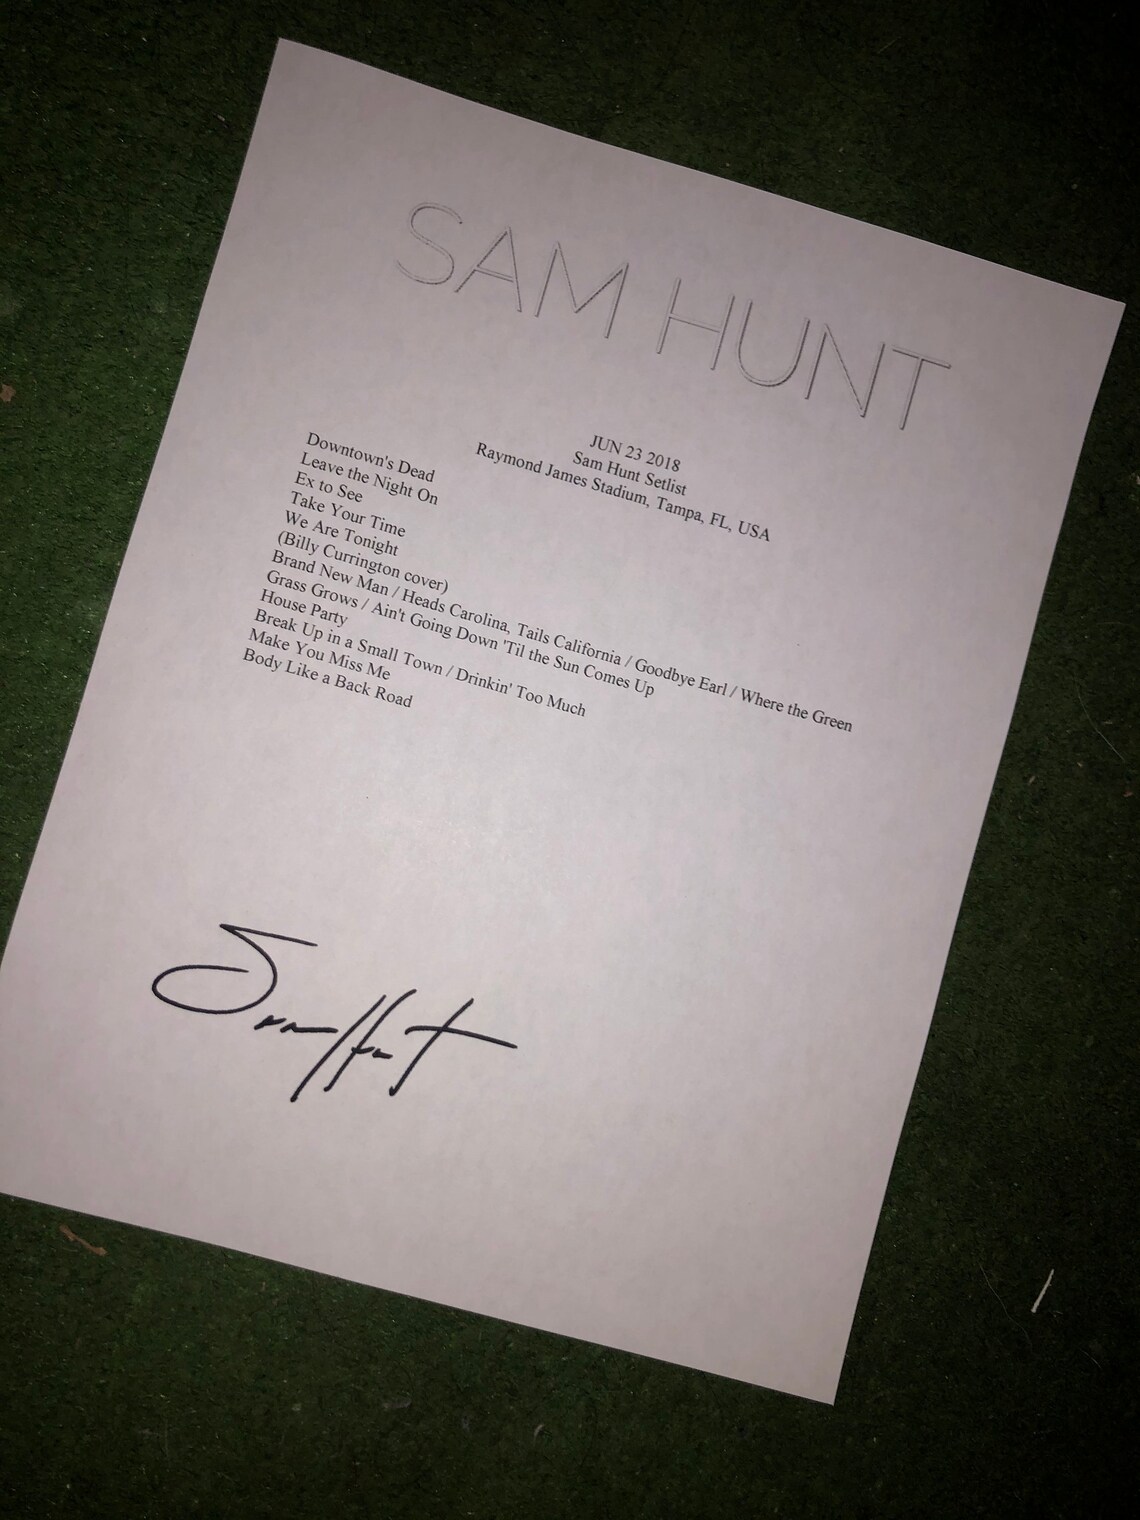 SAM HUNT
JUN 23 2018
Sam Hunt Setlist
Raymond James Stadium, Tampa, FL, USA
Downtown's Dead
Leave the Night On
Ex to See
Take Your Time
We Are Tonight
(Billy Currington cover)
Brand New Man / Heads Carolina, Tails California / Goodbye Earl / Where the Green
Grass Grows / Ain't Going Down 'Til the Sun Comes Up
House Party
Break Up in a Small Town / Drinkin' Too Much
Make You Miss Me
Body Like a Back Road
Sam Hunt